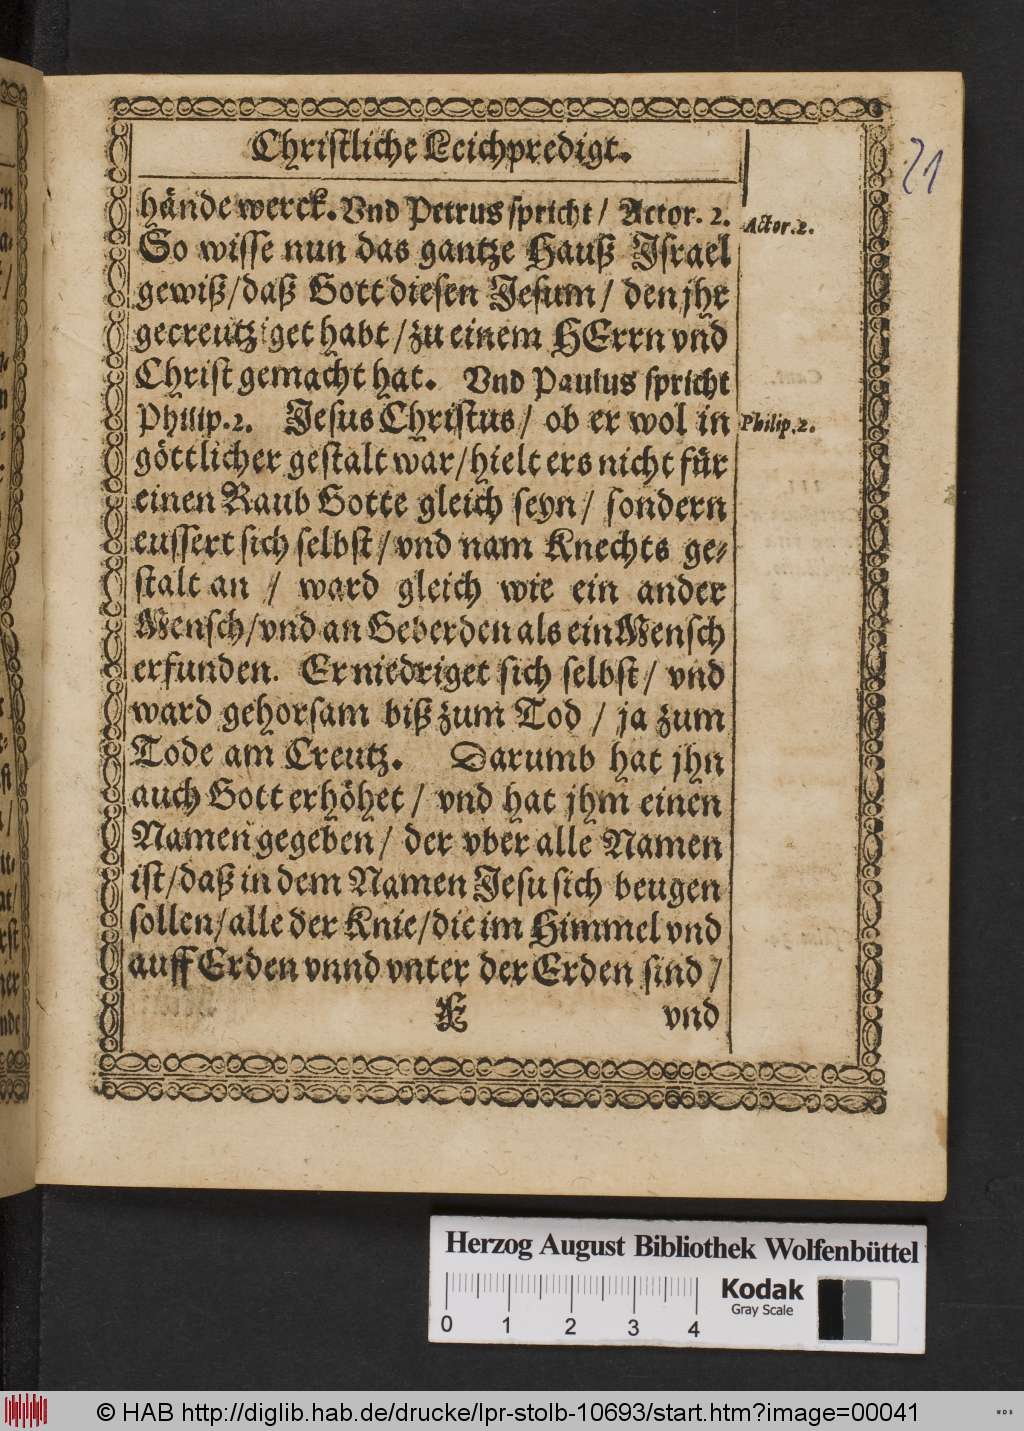 Christliche Leichpredigt.
21
hände werck. Vnd Petrus spricht / Actor. 2.
Actor. 2.
So wisse nun das gantze Hauß Israel
gewiß / daß Gott diesen Jesum / den jhr
gecreutziget habt / zu einem HErrn vnd
Christ gemacht hat. Vnd Paulus spricht
Philip. 2. Jesus Christus / ob er wol in
Philip. 2.
göttlicher gestalt war / hielt ers nicht für
einen Raub Gotte gleich seyn / sondern
eussert sich selbst / vnd nam Knechts ge-
stalt an / ward gleich wie ein ander
Mensch / vnd an Geberden als ein Mensch
erfunden. Er niedriget sich selbst / vnd
ward gehorsam biß zum Tod / ja zum
Tode am Creutz. Darumb hat jhn
auch Gott erhöhet / vnd hat jhm einen
Namen gegeben / der vber alle Namen
ist / daß in dem Namen Jesu sich beugen
sollen / alle der Knie / die im Himmel vnd
auff Erden vnnd vnter der Erden sind /
vnd
Herzog August Bibliothek Wolfenbüttel
Kodak
Gray Scale
0 1 2 3 4
© HAB http://diglib.hab.de/drucke/lpr-stolb-10693/start.htm?image=00041